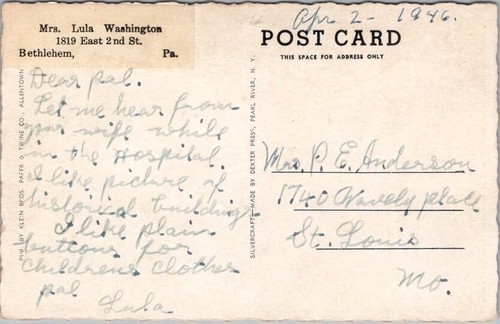 Mrs. Lula Washington
1819 East 2nd St.
Bethlehem, Pa.
Apr 2 - 1946.
POST CARD
THIS SPACE FOR ADDRESS ONLY
Dear pal.
Let me hear from
your wife while
in the Hospital.
I like picture of
historical buildings
I like plain
buttons for
childrens clothes
pal
Lula
PUB. BY KLEIN BROS. PAPER & TWINE CO., ALLENTOWN
SILVERCRAFT MADE BY DEXTER PRESS, PEARL RIVER, N. Y.
Mrs. P. E. Anderson
1740 Wavely place
St. Louis
Mo.